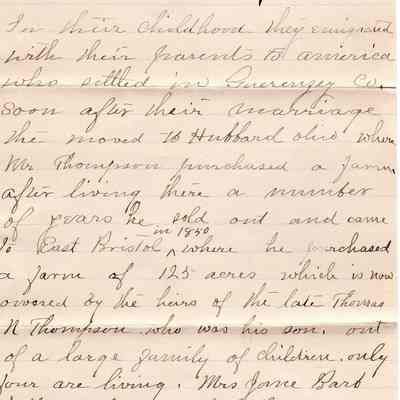 In their childhood they emigrated
with their parents to america
who settled in Guerengey Co.
Soon after their marriage
the moved to Hubbard ohio where
Mr Thompson purchased a farm
after living there a number
of years he sold out and came
in 1850
to East Bristol ^ where he purchased
a farm of 125 acres which is now
owened by the heirs of the late Thomas
N Thompson. who was his son. out
of a large family of children. only
four are living. Mrs Jane Barb